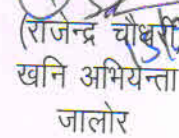 (राजेन्द्र चौधरी)
खनि अभियन्ता
जालोर